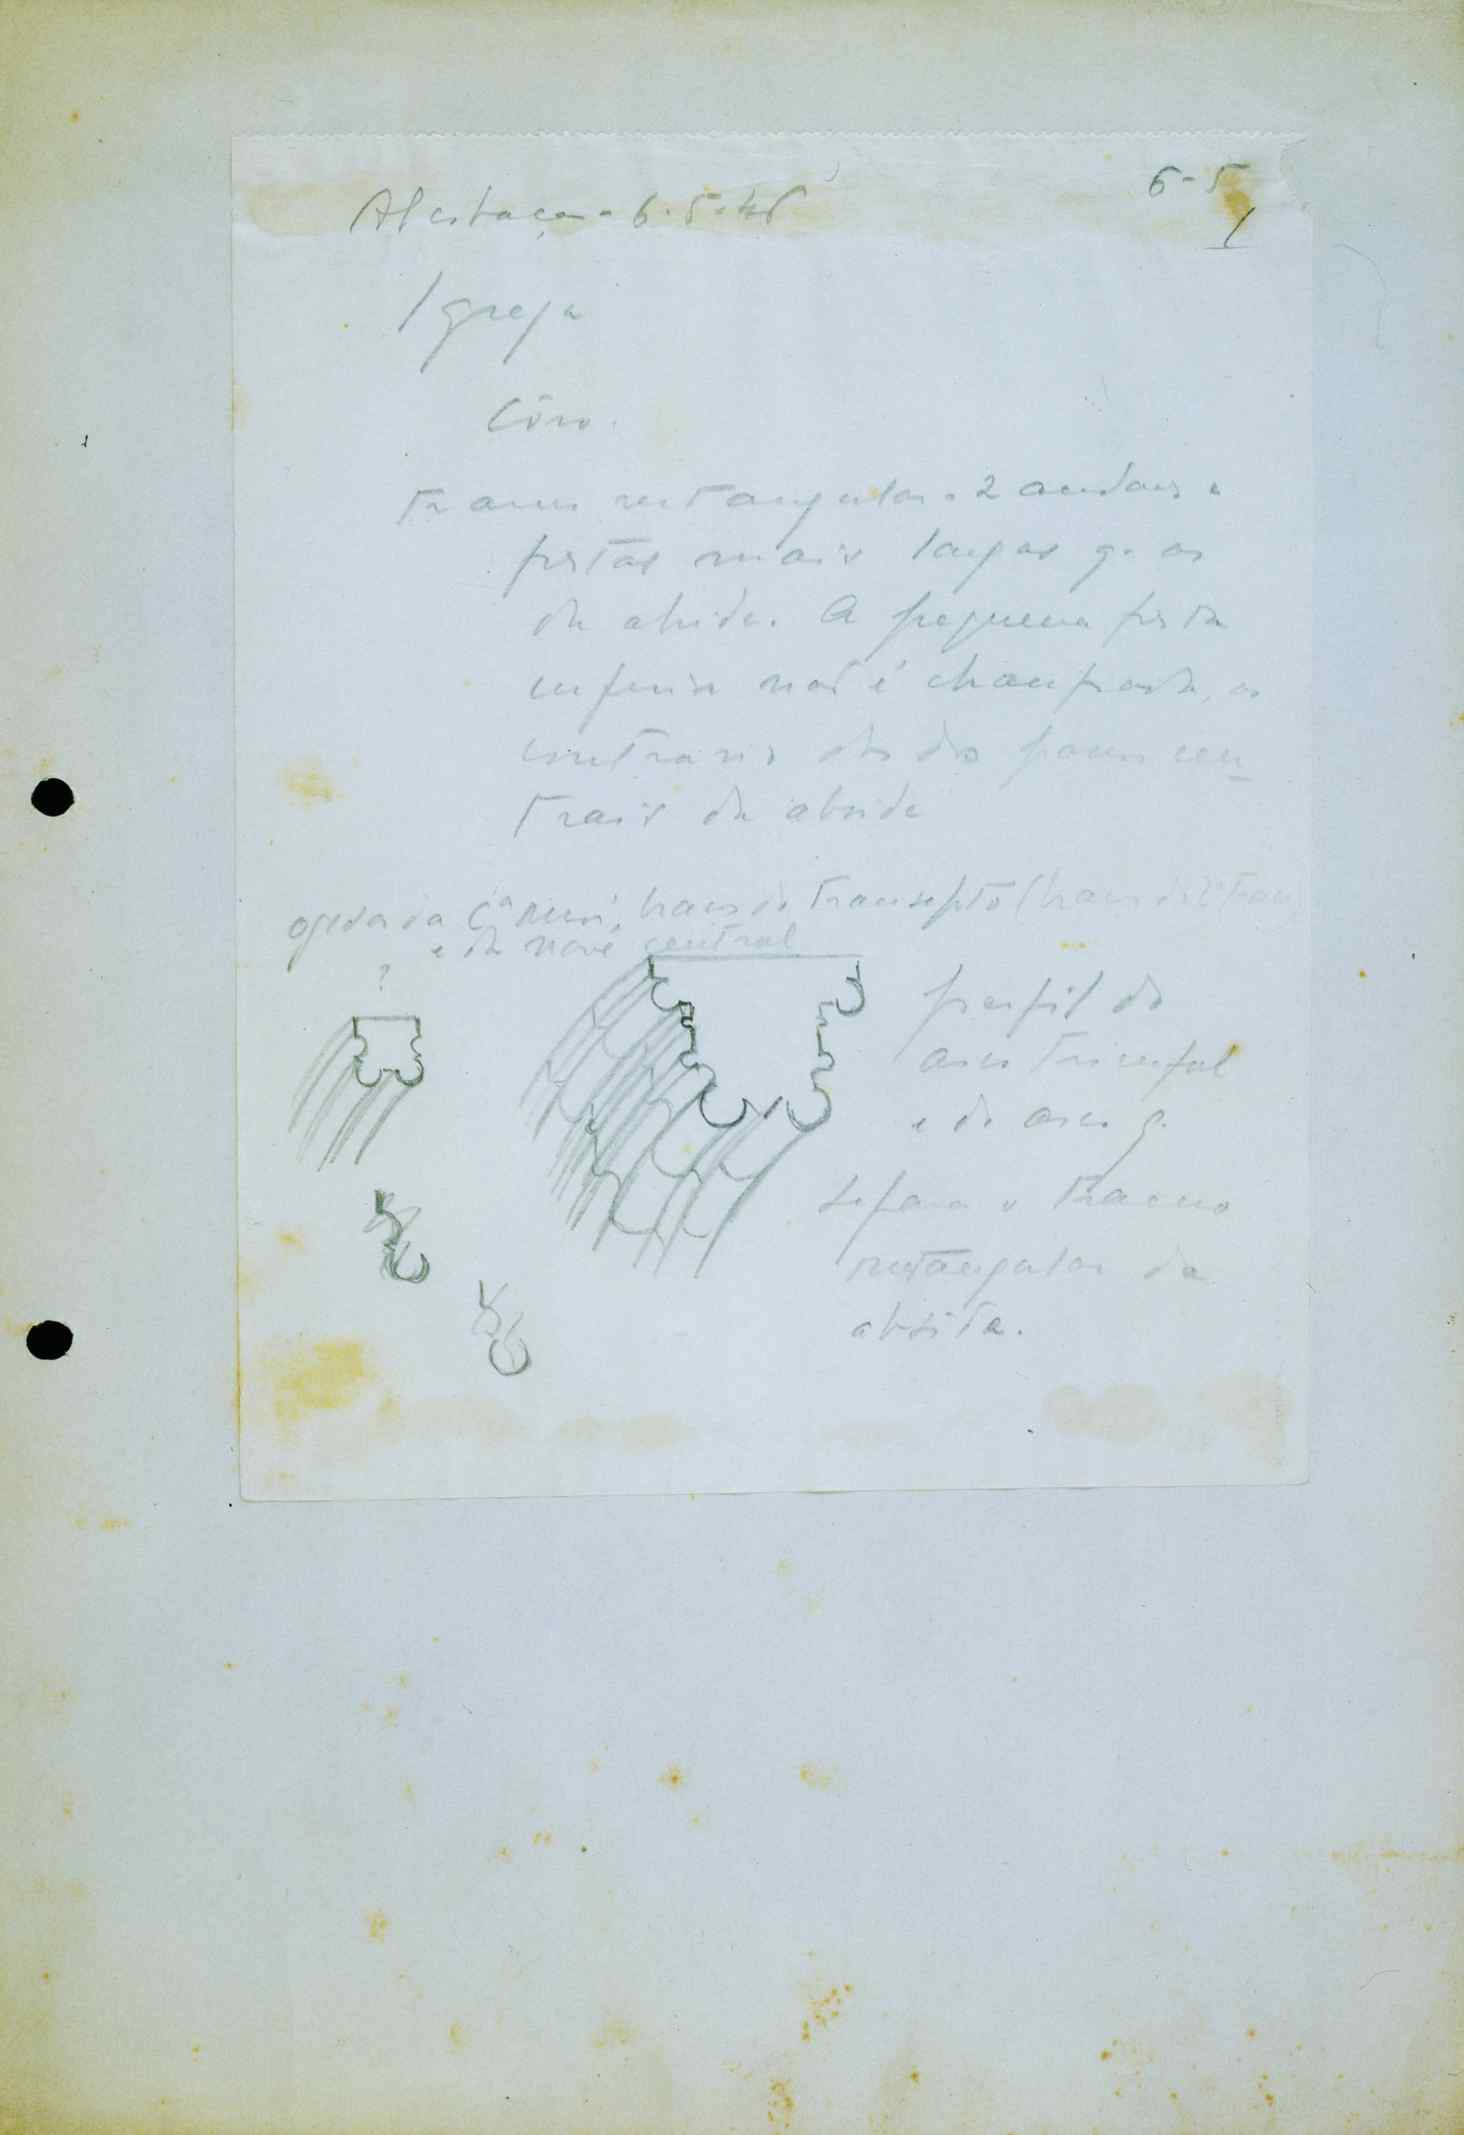 6-5
1
6.5.46
Igreja
Côro.
Tramo rectangular. 2 andares e
frestas mais largas q. as
da abside. A pequena fresta
inferior não é chanfrada, ao
contrario das dos panos cen-
trais da abside
ogiva da C.ª mór, braços do transepto (braços do
e da nave central
?
perfil do
arco triunfal
e do arco q.
separa o tramo
rectangular da
absita.